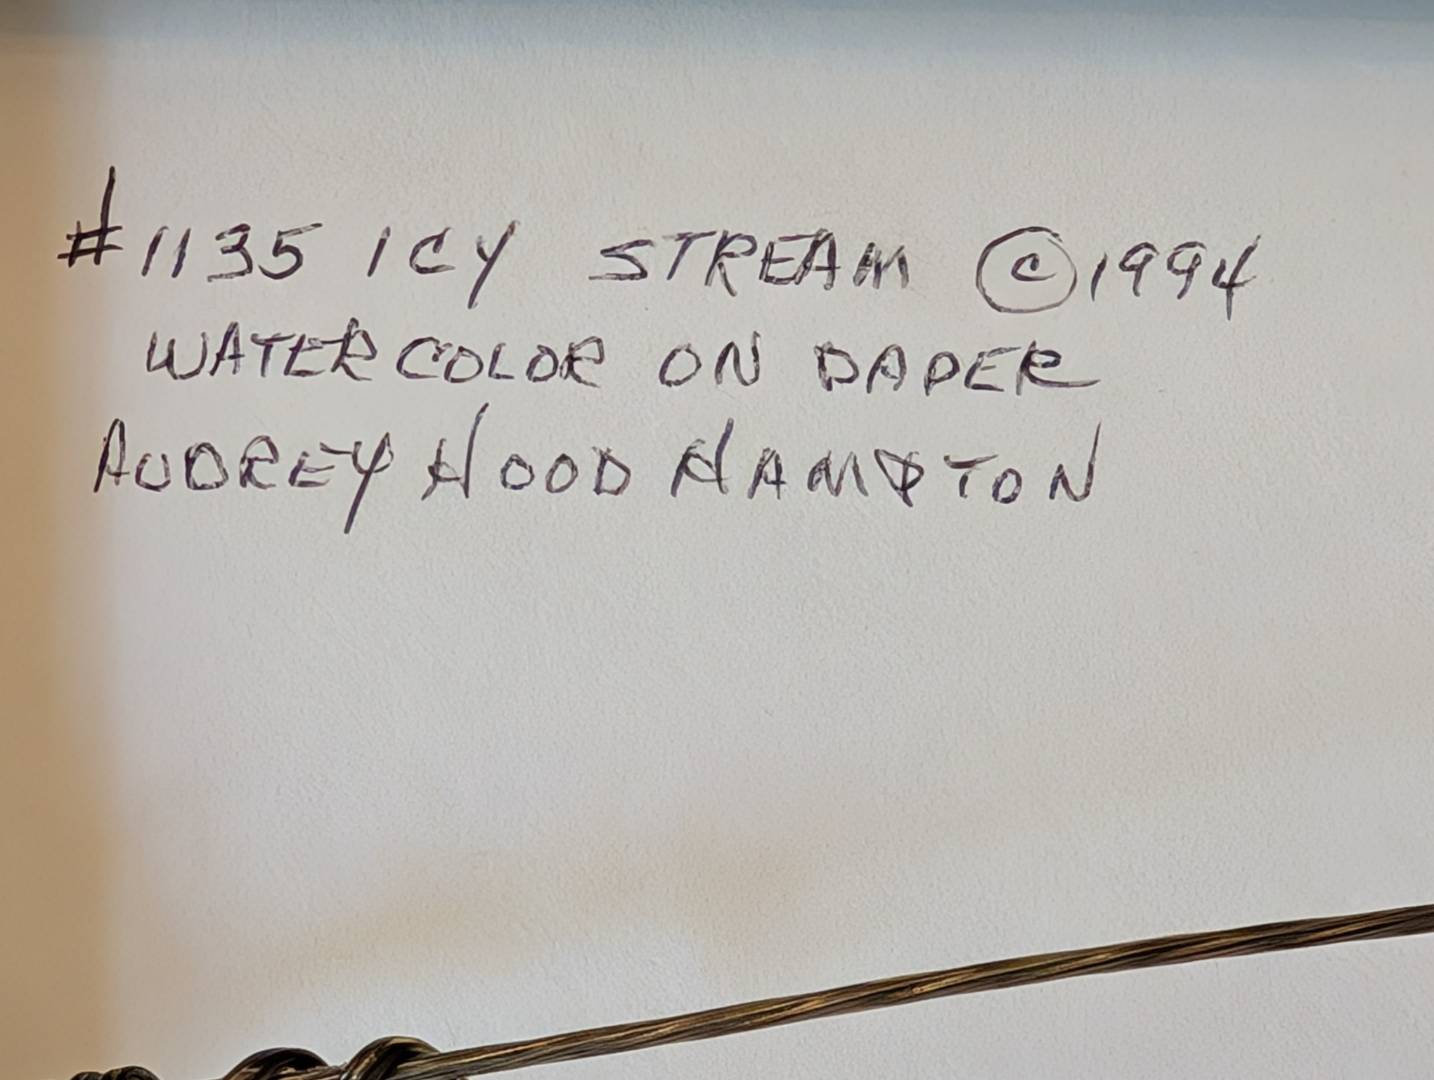 #1135 ICY STREAM ©1994
WATERCOLOR ON PAPER
AUDREY HOOD HAMPTON